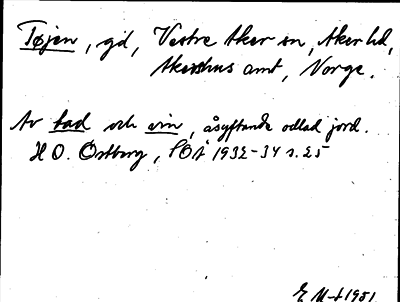 Tøjen, gd, Vestre Aker sn, Aker hd,
Akershus amt, Norge.
Av tad och vin, åsyftande odlad jord.
H O. Østberg, SOÅ 1932-34 s. 25
E M-t 1951